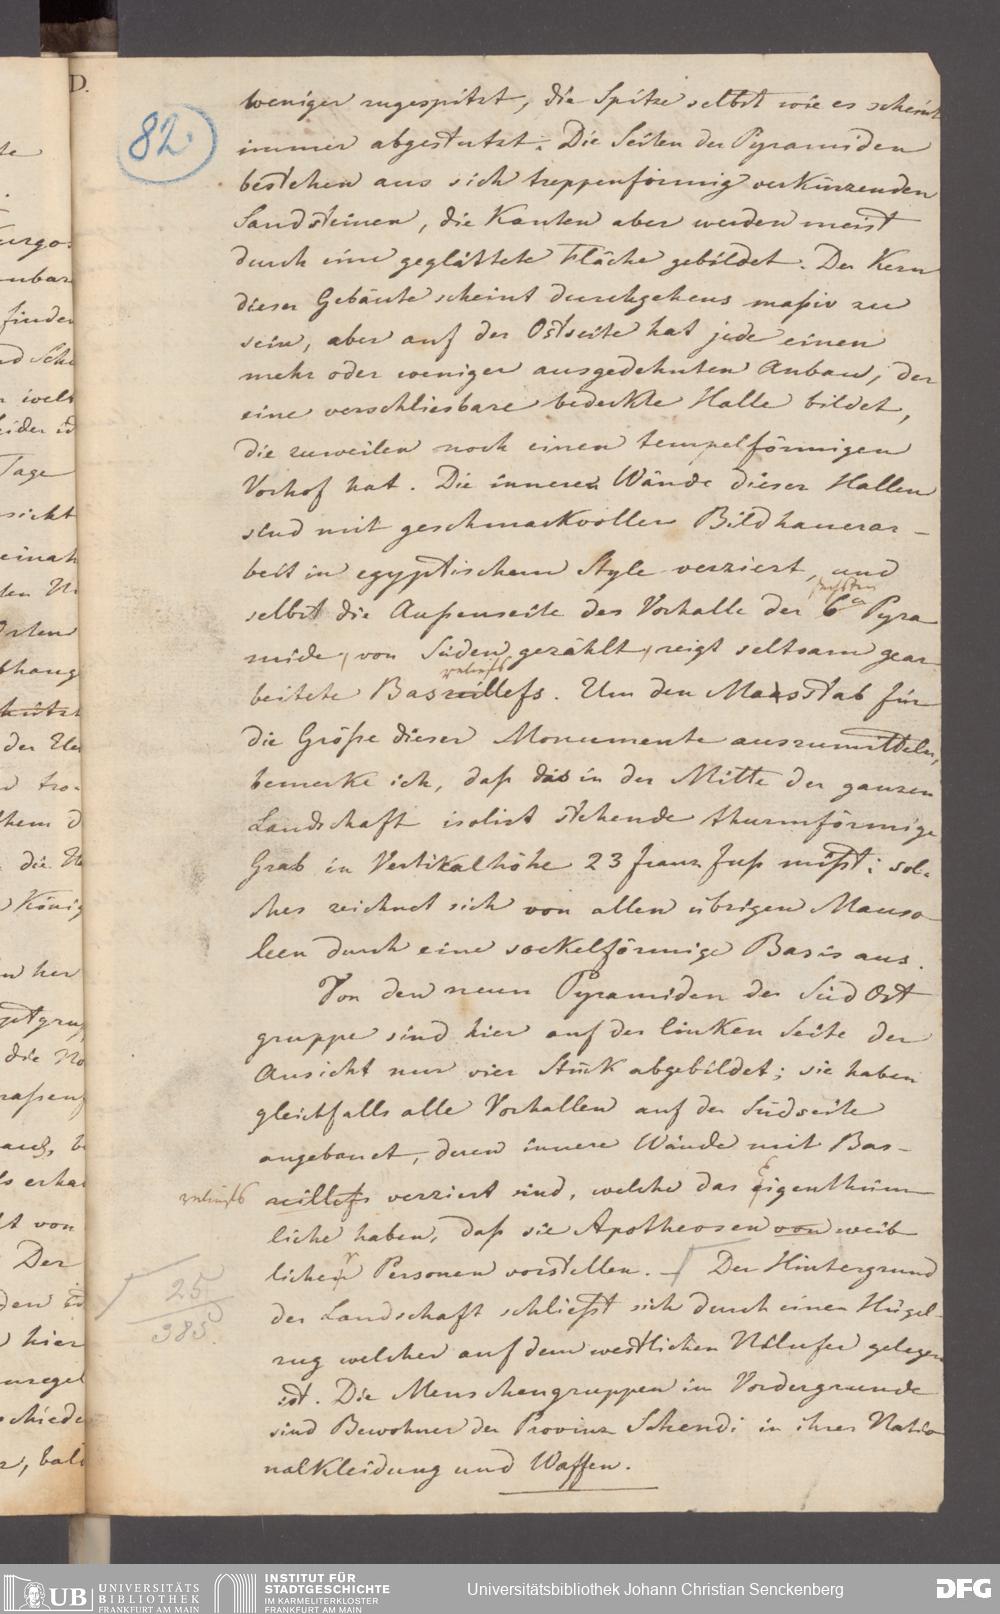 82.
weniger zugespitzt, die Spitze selbst wie es scheint
immer abgestutzt. Die Seiten der Pyramiden
bestehen aus sich treppenförmig verkürzenden
Sandsteinen, die Kanten aber werden meist
durch eine geglättete Fläche gebildet. Der Kern
dieser Gebäute scheint durchgehens maßiv zu
sein, aber auf der Ostseite hat jede einen
mehr oder weniger ausgedehnten Anbau, der
eine verschliesbare bedeckte Halle bildet,
die zuweilen noch einen tempelförmigen
Vorhof hat. Die inneren Wände dieser Hallen
sind mit geschmackvoller Bildhauerar-
beit in egyptischem Style verziert, und
sechsten
selbst die Außenseite des Vorhalle der 6n Pyra
mide, von Süden gezählt, zeigt seltsam gear-
reliefs
beitete Basreillefs. Um den Maasstab für
die Größe dieser Monumente auszumitteln,
bemerke ich, daß das in der Mitte der ganzen
Landschaft isolirt stehende thurmförmige
Grab in Vertikalhöhe 23 franz Fuß mißt; sol-
ches zeichnet sich von allen übrigen Mauso
leen durch eine sockelförmige Basis aus.
Von den neun Pyramiden der Süd Ost
gruppe sind hier auf der linken Seite der
Ansicht nur vier Stück abgebildet; sie haben
gleichfalls alle Vorhallen auf der Südseite
angebauet, deren innere Wände mit Bas-
reliefs
reillefs verziert sind, welche das Eigenthüm
liche haben, daß sie Apotheosen von weib
licher Personen vorstellen. – Der Hintergrund
25
385.
der Landschaft schließt sich durch einen Hügel-
zug welcher auf dem westlichen Nilufer gelegen
ist. Die Menschengruppen im Vordergrunde
sind Bewohner der Provinz Schendi in ihrer Natio
nalkleidung und Waffen.
D.
UB UNIVERSITÄTS
BIBLIOTHEK
FRANKFURT AM MAIN
INSTITUT FÜR
STADTGESCHICHTE
IM KARMELITERKLOSTER
FRANKFURT AM MAIN
Universitätsbibliothek Johann Christian Senckenberg
DFG